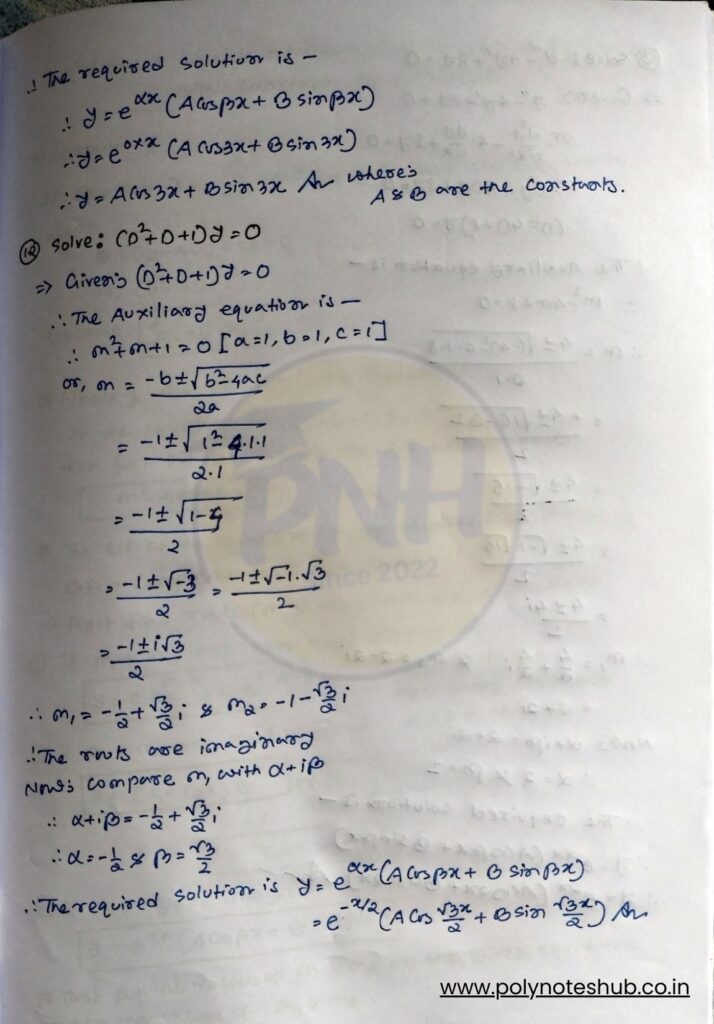 ∴ The required solution is —
∴ y = e^αx (A cos βx + B sin βx)
∴ y = e^0×x (A cos 3x + B sin 3x)
∴ y = A cos 3x + B sin 3x An where,
A & B are the constants.
⑫ Solve: (D²+D+1)y = 0
⇒ Given, (D²+D+1)y = 0
∴ The Auxiliary equation is —
∴ m²+m+1 = 0 [a=1, b=1, c=1]
or, m = (-b ± √(b²-4ac)) / 2a
= (-1 ± √(1²-4.1.1)) / 2.1
= (-1 ± √(1-4)) / 2
= (-1 ± √-3) / 2 = (-1 ± √-1.√3) / 2
= (-1 ± i√3) / 2
∴ m₁ = -1/2 + √3/2 i & m₂ = -1 - √3/2 i
∴ The roots are imaginary
Now, compare m₁ with α+iβ
∴ α+iβ = -1/2 + √3/2 i
∴ α = -1/2 & β = √3/2
∴ The required solution is y = e^αx (A cos βx + B sin βx)
= e^-x/2 (A cos √3x/2 + B sin √3x/2) An
PNH
Since 2022
www.polynoteshub.co.in